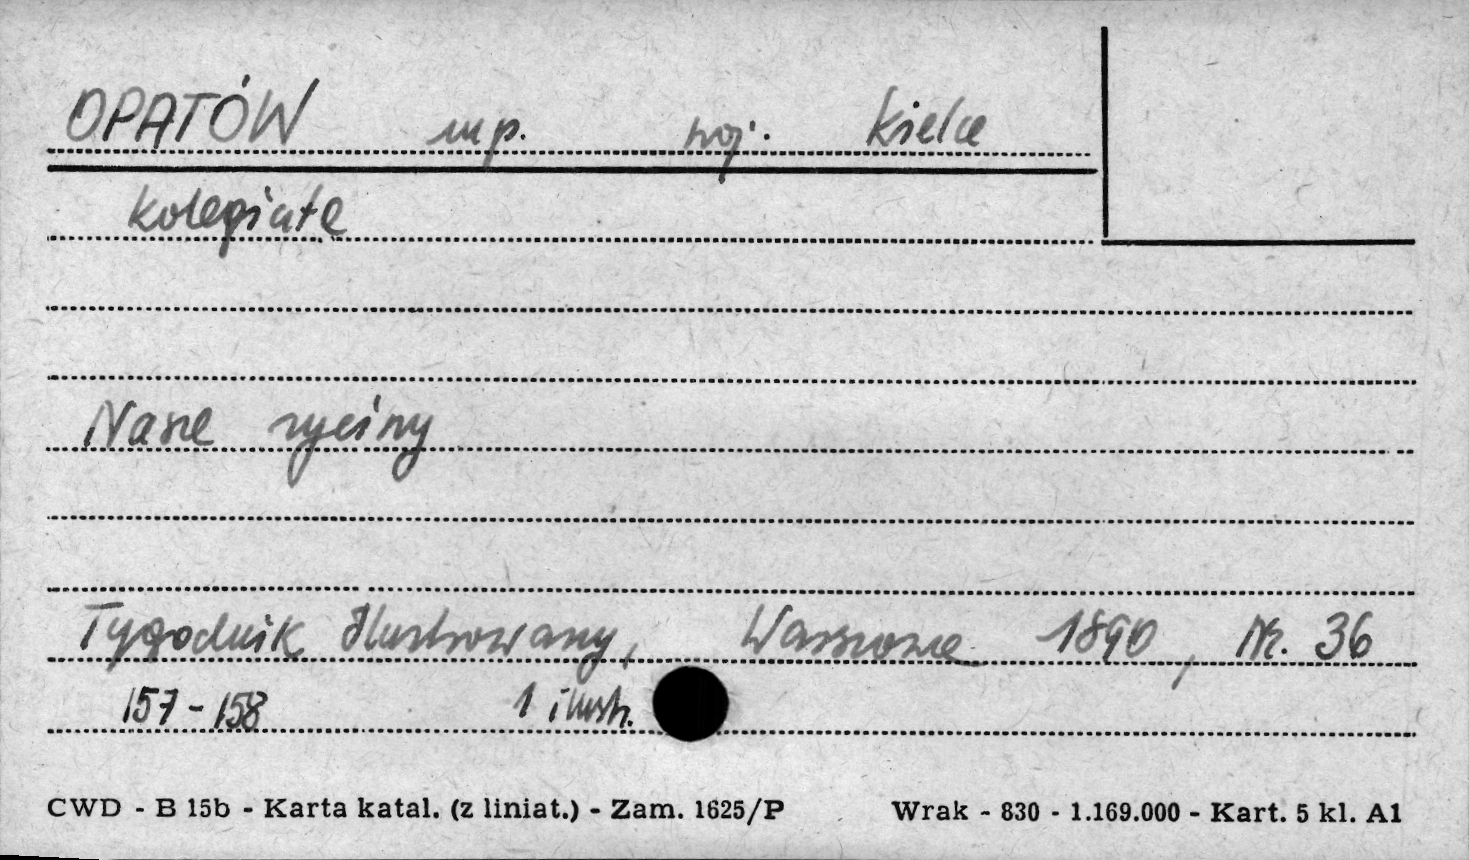 OPATÓW mp. woj. Kielce
kolegiata
Nasze ryciny
Tygodnik Ilustrowany, Warszawa 1890, Nr. 36
157-158 1 ilustr.
CWD - B 15b - Karta katal. (z liniat.) - Zam. 1625/P Wrak - 830 - 1.169.000 - Kart. 5 kl. A1